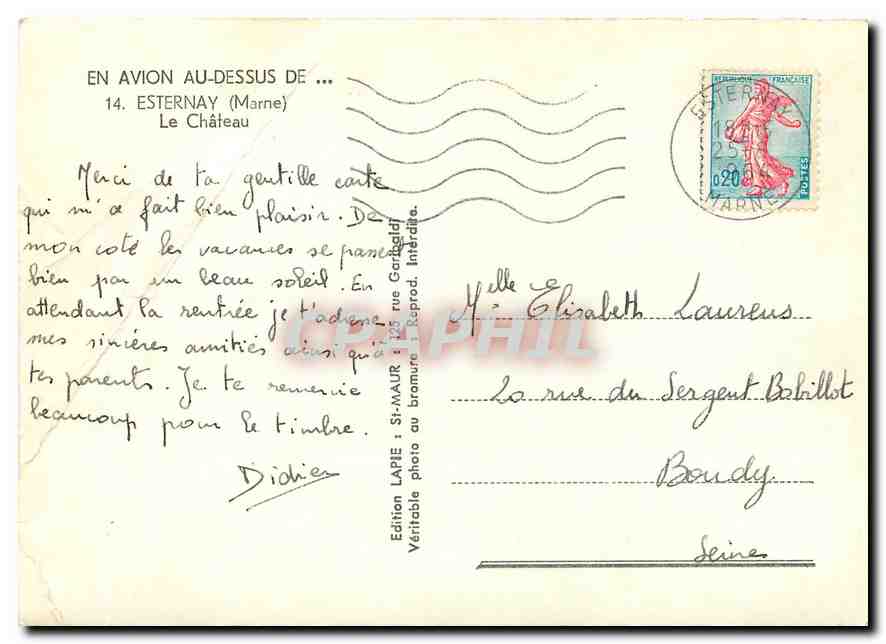 EN AVION AU-DESSUS DE ...
14. ESTERNAY (Marne)
Le Château
Merci de ta gentille carte
qui m'a fait bien plaisir. De
mon coté les vacances se passent
bien par un beau soleil. En
attendant la rentrée je t'adresse
mes sincères amitiés ainsi qu'à
tes parents. Je te remercie
beaucoup pour le timbre.
Didier
Edition LAPIE : St-MAUR : 125 rue Garibaldi
Véritable photo au bromure : Reprod. Interdite.
REPUBLIQUE FRANÇAISE
0,20
POSTES
ESTERNAY
18H
25
MARNE
Melle Elisabeth Laureus
La rue du Sergent Bobillot
Bondy
Seine
CPAPHIL